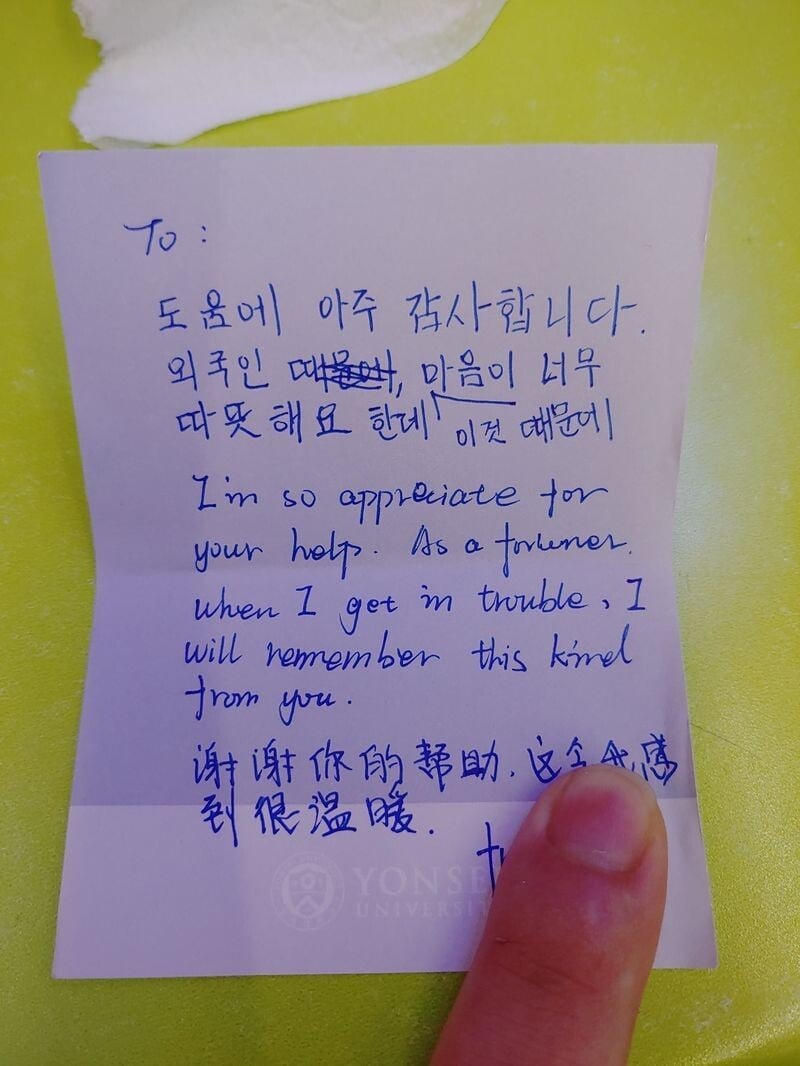 To :
도움에 아주 감사합니다.
외국인 , 마음이 너무
따뜻해요 한데 이것 때문에
I'm so appreciate for
your help. As a foriener.
when I get in trouble, I
will remember this kind
from you.
谢谢你的帮助. 这 我感
到很温暖.
YONSE
UNIVERSI